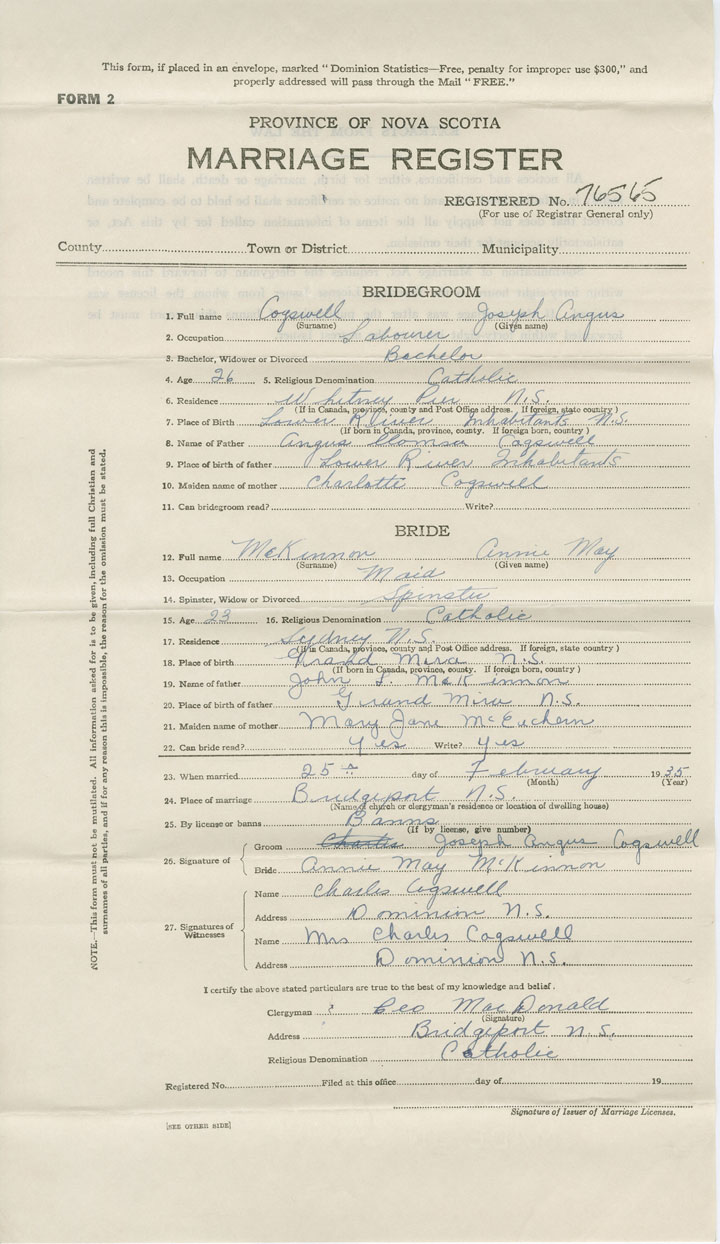 This form, if placed in an envelope, marked "Dominion Statistics—Free, penalty for improper use $300," and
properly addressed will pass through the Mail "FREE."
FORM 2
PROVINCE OF NOVA SCOTIA
MARRIAGE REGISTER
REGISTERED No. 76565
(For use of Registrar General only)
County Town or District Municipality
BRIDEGROOM
1. Full name Cogswell Joseph Angus
(Surname) (Given name)
2. Occupation Labourer
3. Bachelor, Widower or Divorced Bachelor
4. Age 26 5. Religious Denomination Catholic
6. Residence Whitney Pier N.S.
(If in Canada, province, county and Post Office address. If foreign, state country)
7. Place of Birth Lower River Inhabitants N.S.
(If born in Canada, province, county. If foreign born, country)
8. Name of Father Angus Cogswell
9. Place of birth of father Lower River Inhabitants
10. Maiden name of mother Charlotte Cogswell
11. Can bridegroom read? Write?
BRIDE
12. Full name McKinnon Annie May
(Surname) (Given name)
13. Occupation Maid
14. Spinster, Widow or Divorced Spinster
15. Age 23 16. Religious Denomination Catholic
17. Residence Sydney N.S.
(If in Canada, province, county and Post Office address. If foreign, state country)
18. Place of birth Grand Mira N.S.
(If born in Canada, province, county. If foreign born, country)
19. Name of father John L. McKinnon
20. Place of birth of father Grand Mira N.S.
21. Maiden name of mother Mary Jane McEachern
22. Can bride read? Yes Write? Yes
23. When married 25th day of February 1935
(Month) (Year)
24. Place of marriage Bridgeport N.S.
(Name of church or clergyman's residence or location of dwelling house)
25. By license or banns Banns
(If by license, give number)
26. Signature of Groom Charles Joseph Angus Cogswell
Bride Annie May McKinnon
27. Signatures of Witnesses Name Charles Cogswell
Address Dominion N.S.
Name Mrs Charles Cogswell
Address Dominion N.S.
I certify the above stated particulars are true to the best of my knowledge and belief.
Clergyman Geo MacDonald
(Signature)
Address Bridgeport N.S.
Religious Denomination Catholic
Registered No. Filed at this office day of 19
Signature of Issuer of Marriage Licenses.
[SEE OTHER SIDE]
NOTE.—This form must not be mutilated. All information asked for is to be given, including full Christian and
surnames of all parties, and if for any reason this is impossible, the reason for the omission must be stated.